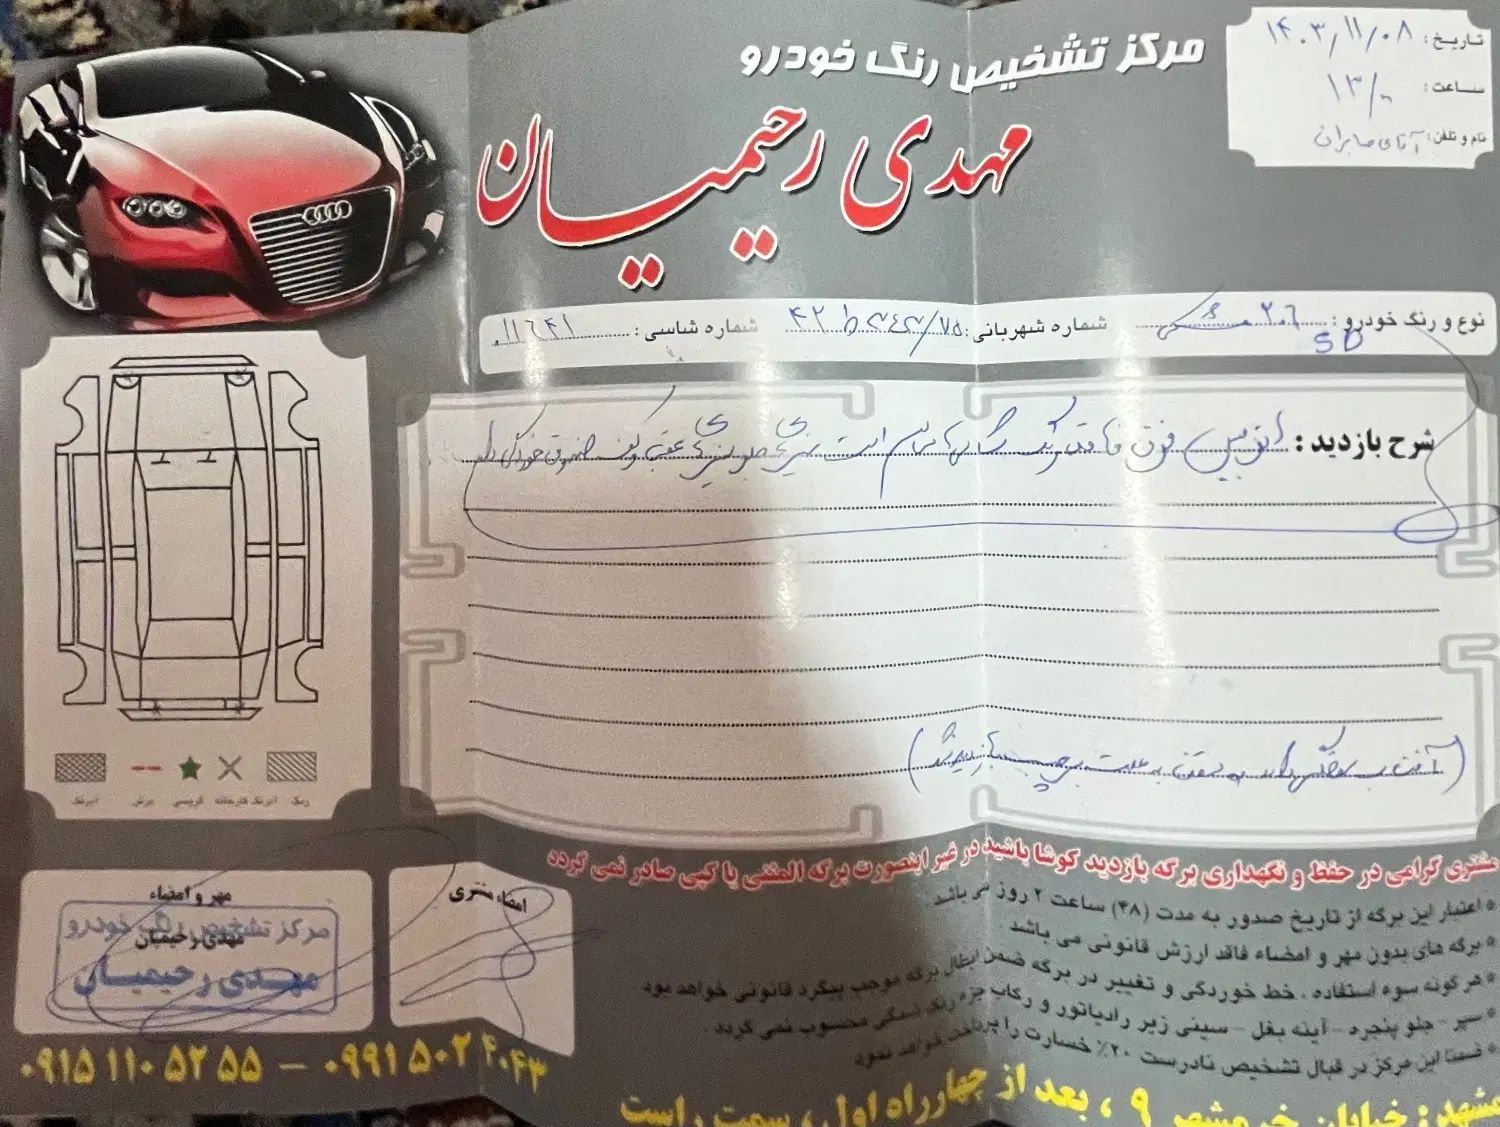 مرکز تشخیص رنگ خودرو
مهدی رحیمیان
تاریخ: ۱۴۰۳/۱۱/۰۸
ساعت: ۱۳/۰
نام و تلفن: آقای صابران
نوع و رنگ خودرو: ۲۰۶ مشکی
SD
شماره شهربانی:
شماره شاسی:
شرح بازدید: اتومبیل فوق فاقد رنگ
مشتری گرامی در حفظ و نگهداری برگه بازدید کوشا باشید در غیر اینصورت برگه المثنی یا کپی صادر نمی گردد
* اعتبار این برگه از تاریخ صدور به مدت (۴۸) ساعت ۲ روز می باشد.
* برگه های بدون مهر و امضاء فاقد ارزش قانونی می باشد.
* هرگونه سوء استفاده، خط خوردگی و تغییر در برگه ضمن ابطال برگه موجب پیگرد قانونی خواهد بود
* سپر - جلو پنجره - آینه بغل - سینی زیر رادیاتور و رکاب جزء رنگ شدگی محسوب نمی گردد.
* ضمنا این مرکز در قبال تشخیص نادرست ۲۰٪ خسارت را پرداخت خواهد نمود
رنگ
آبرنگ کارخانه
گریسی
برش
آبرنگ
مهر و امضاء
مهدی رحیمیان
مرکز تشخیص رنگ خودرو
مهدی رحیمیان
امضاء مشتری
۰۹۱۵ ۱۱۰ ۵۲ ۵۵ – ۰۹۹۱ ۵۰۲ ۴۰۴۳
مشهد: خیابان خرمشهر ۹، بعد از چهارراه اول، سمت راست